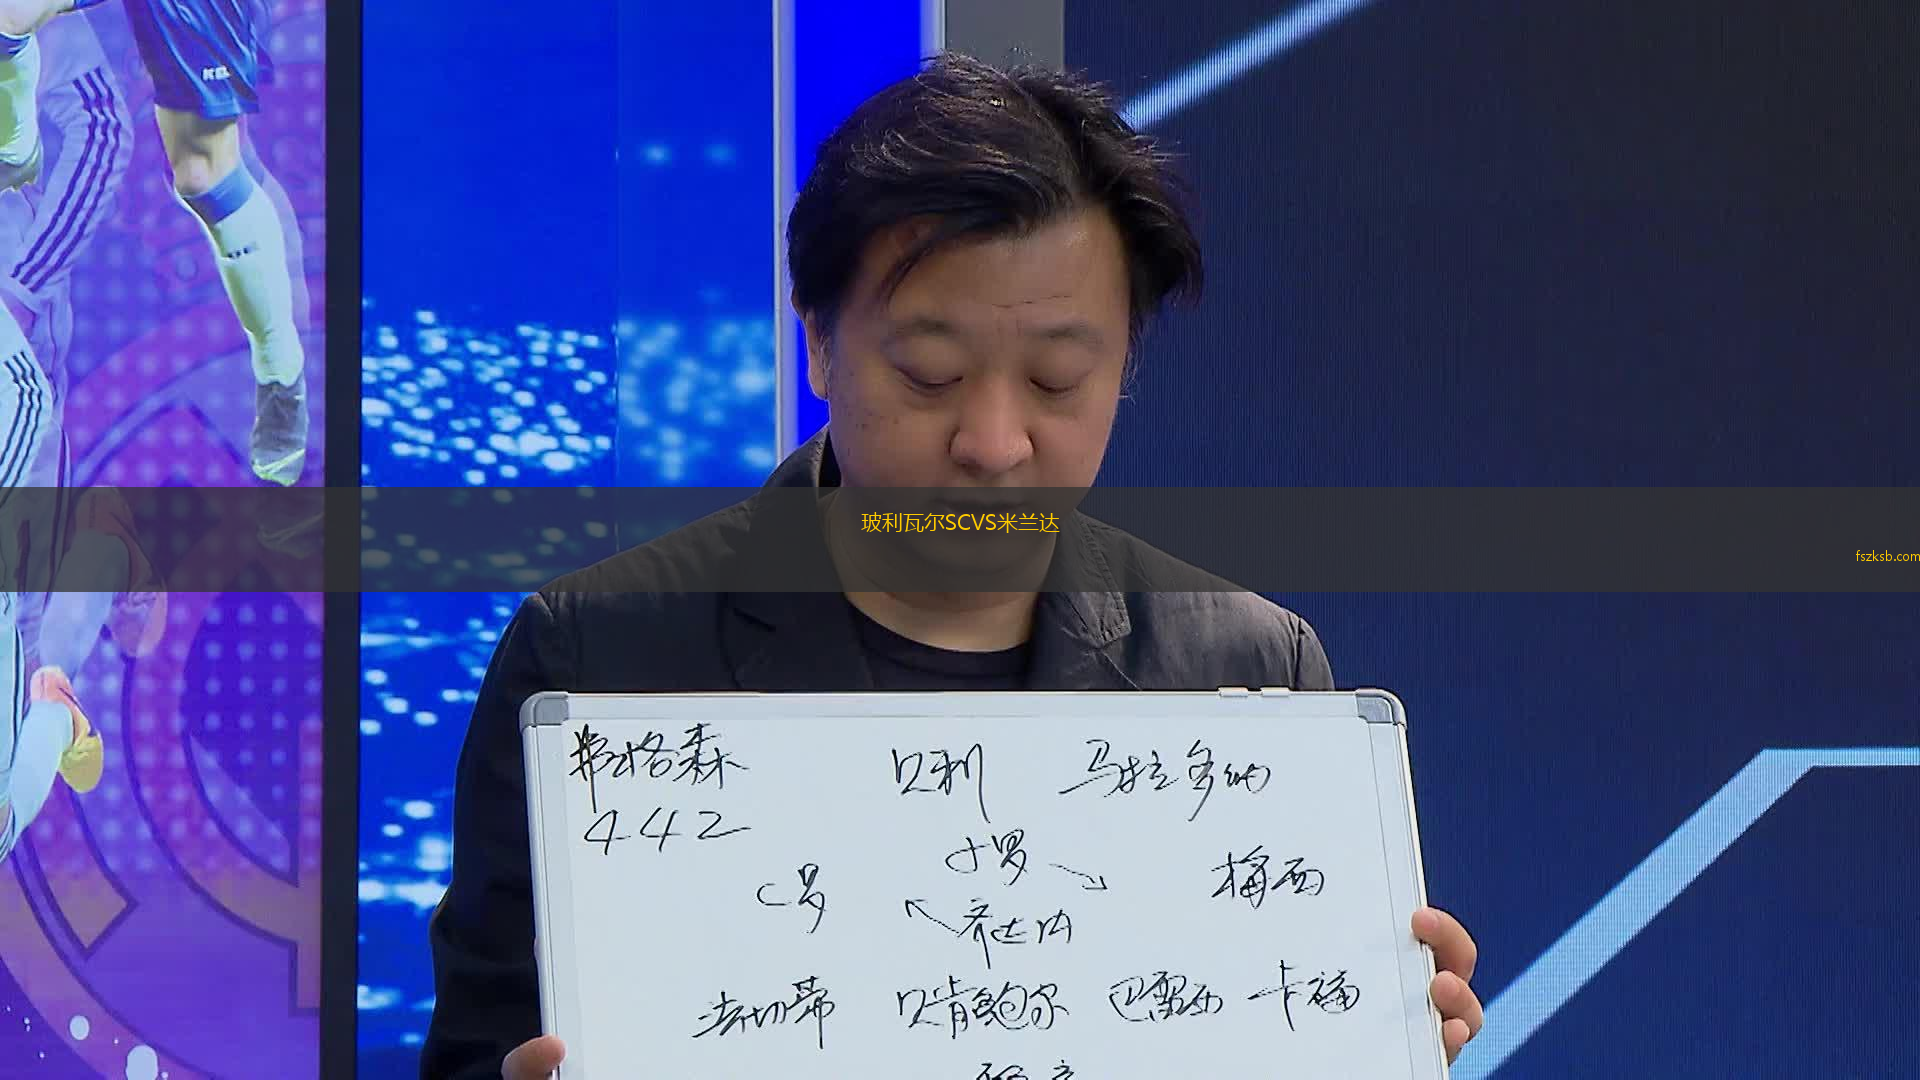 玻利瓦尔SCVS米兰达
fszksb.com
弗格森 贝利 马拉多纳
442
小罗
C罗 梅西
齐达内
法切蒂 贝肯鲍尔 巴雷西 卡福